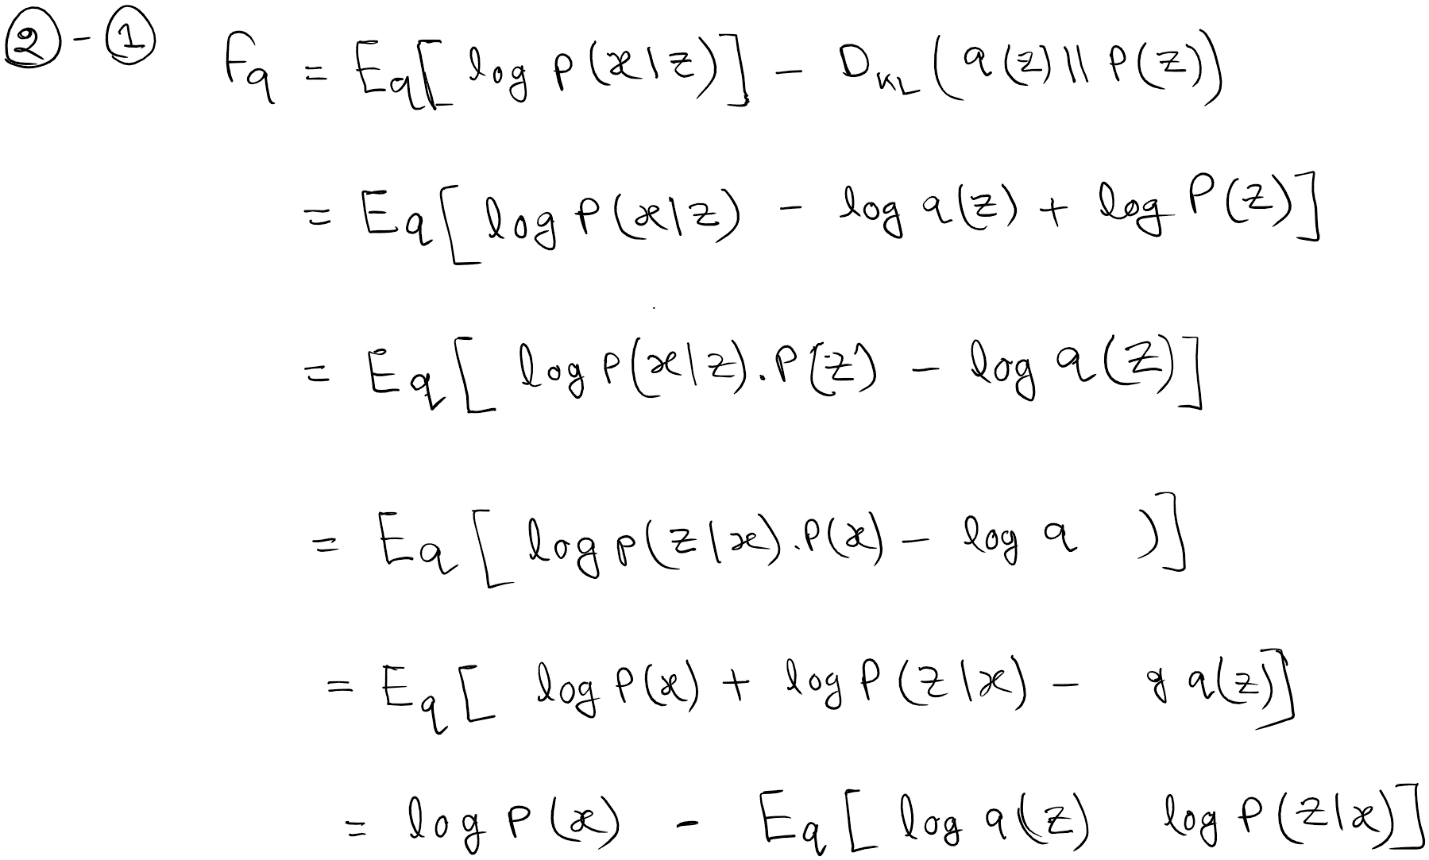 ②-① Fq = Eq[ log p(x|z)] - D_KL( q(z) || P(z))
= Eq[ log P(x|z) - log q(z) + log P(z)]
= Eq[ log P(x|z).P(z) - log q(z)]
= Eq[ log p(z|x).P(x) - log q )]
= Eq[ log P(x) + log P(z|x) - g q(z)]
= log P(x) - Eq[ log q(z) log P(z|x)]